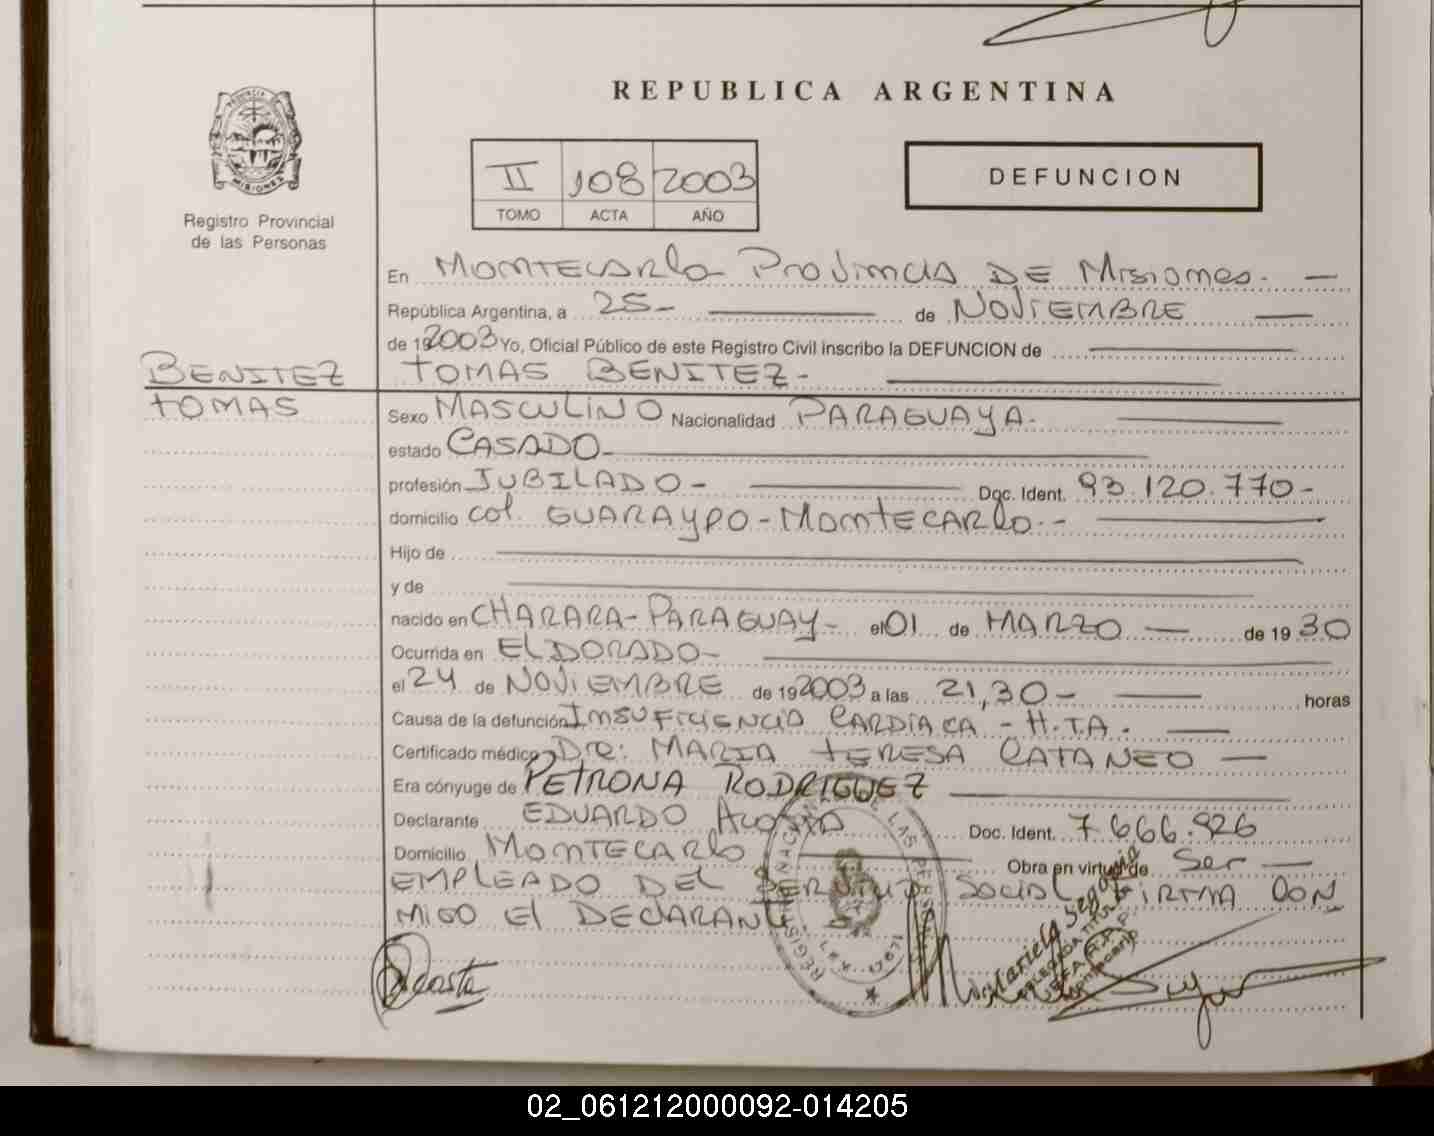 REPUBLICA ARGENTINA
PROVINCIA DE
MISIONES
Registro Provincial
de las Personas
II 108 2003
TOMO ACTA AÑO
DEFUNCION
En Montecarlo Provincia DE Misiones. —
República Argentina, a 25- de NOViEMBRE
de 192003 Yo, Oficial Público de este Registro Civil inscribo la DEFUNCION de
BENITEZ
TOMAS BENITEZ-
TOMAS
Sexo MASCULINO Nacionalidad PARAGUAYA.
estado CASADO-
profesión JUBILADO- Doc. Ident. 93.120.770-
domicilio Col. GUARAYPO-MontECARlo.-
Hijo de
y de
nacido en CHARARA-PARAGUAY- el 01 de MARZO — de 19 30
Ocurrida en ELDORADO-
el 24 de NOViEMBRE de 192003 a las 21,30- horas
Causa de la defunción InsuFiciENCiA CARDIACA - H.T.A.
Certificado médico Dra: MARIA tERESA CATANEO —
Era cónyuge de PETRONA RODRIGUEZ
Declarante EDUARDO Acosta Doc. Ident. 7.666.926
Domicilio MontECARlo Obra en virtud de Ser —
EMPLEADO DEL SERViciO Social. FiRMA CON
MIGO El DEClARANtE
Acosta
02_061212000092-014205